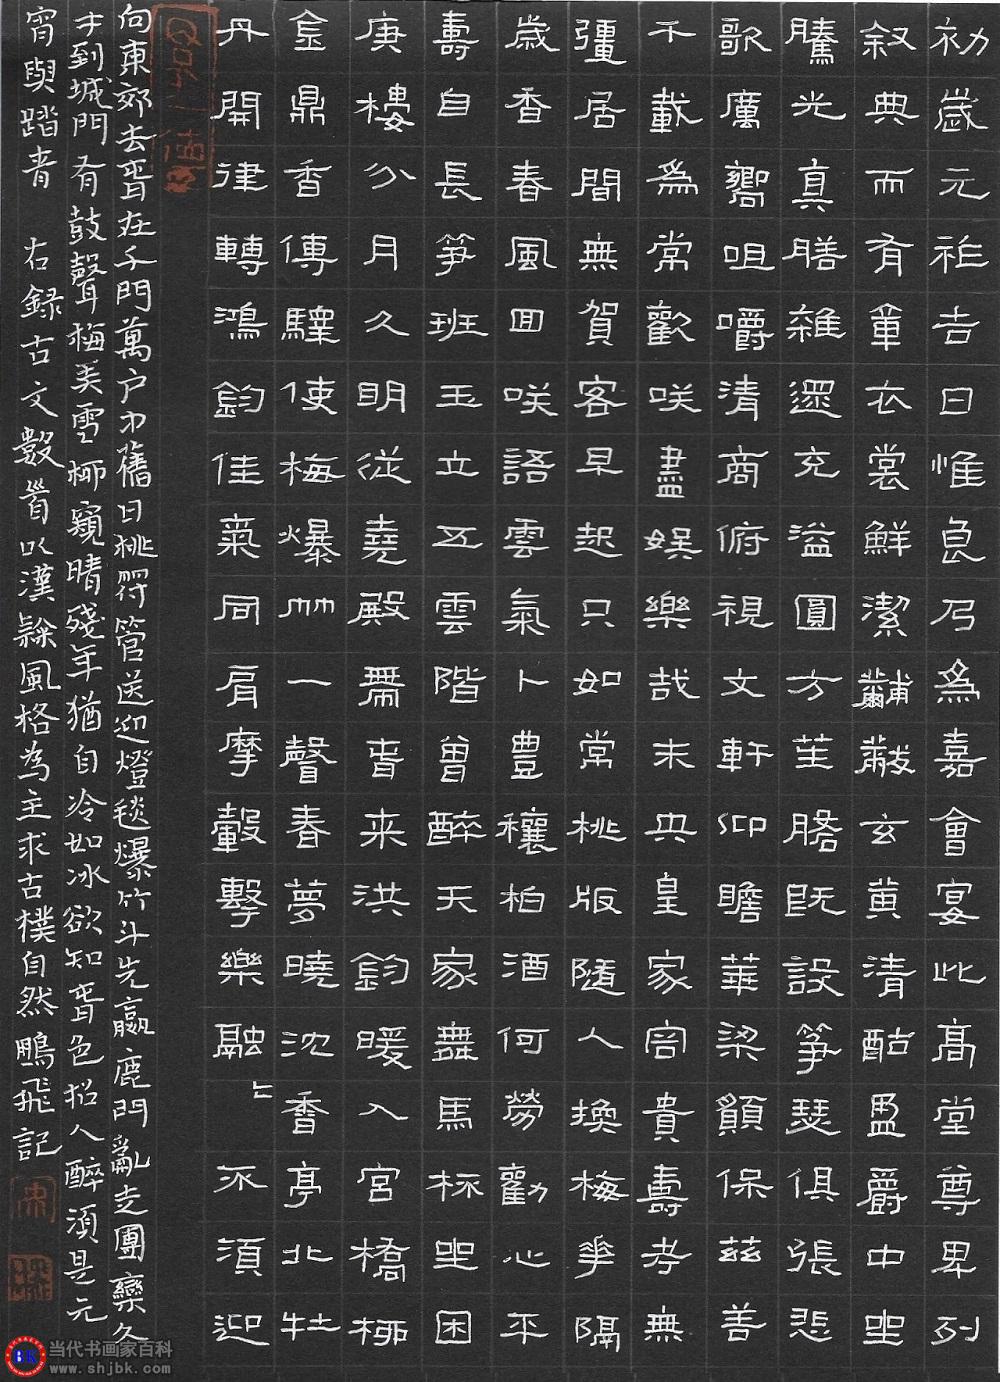 初歲元祚吉日惟良乃為嘉會宴此高堂尊卑列
叙典而有章衣裳鮮潔黼黻玄黃清酤盈爵中坐
騰光真膳雜遝充溢圓方笙磬既設箏瑟俱張悲
歌厲響咀嚼清商俯視文軒仰瞻華梁願保茲善
千載為常歡咲盡娛樂哉未央皇家容貴壽考無
疆居間無賀客早起只如常桃版隨人換梅華隔
歲香春風回咲語雲氣卜豊穰柏酒何勞勸心平
壽自長笋班玉立五雲階曾醉天家舞馬杯坐困
庚樓分月久明從堯殿帶春来洪鈞暖入宮橋柳
金鼎香傳驛使梅爆竹一聲春夢曉沈香亭北牡
丹開律轉鴻鈞佳氣同肩摩轂擊樂融々不須迎
向東郊去春在千門萬户中舊日桃符管送迎燈毬爆竹斗先贏鹿門亂走團欒久
才到城門有鼓聲梅美雪柳窺晴殘年猶自冷如冰欲知春色招人醉須是元
宵與踏青 右録古文數首以漢隸風格為主求古樸自然鵬飛記
当代书画家百科
www.shjbk.com
BK